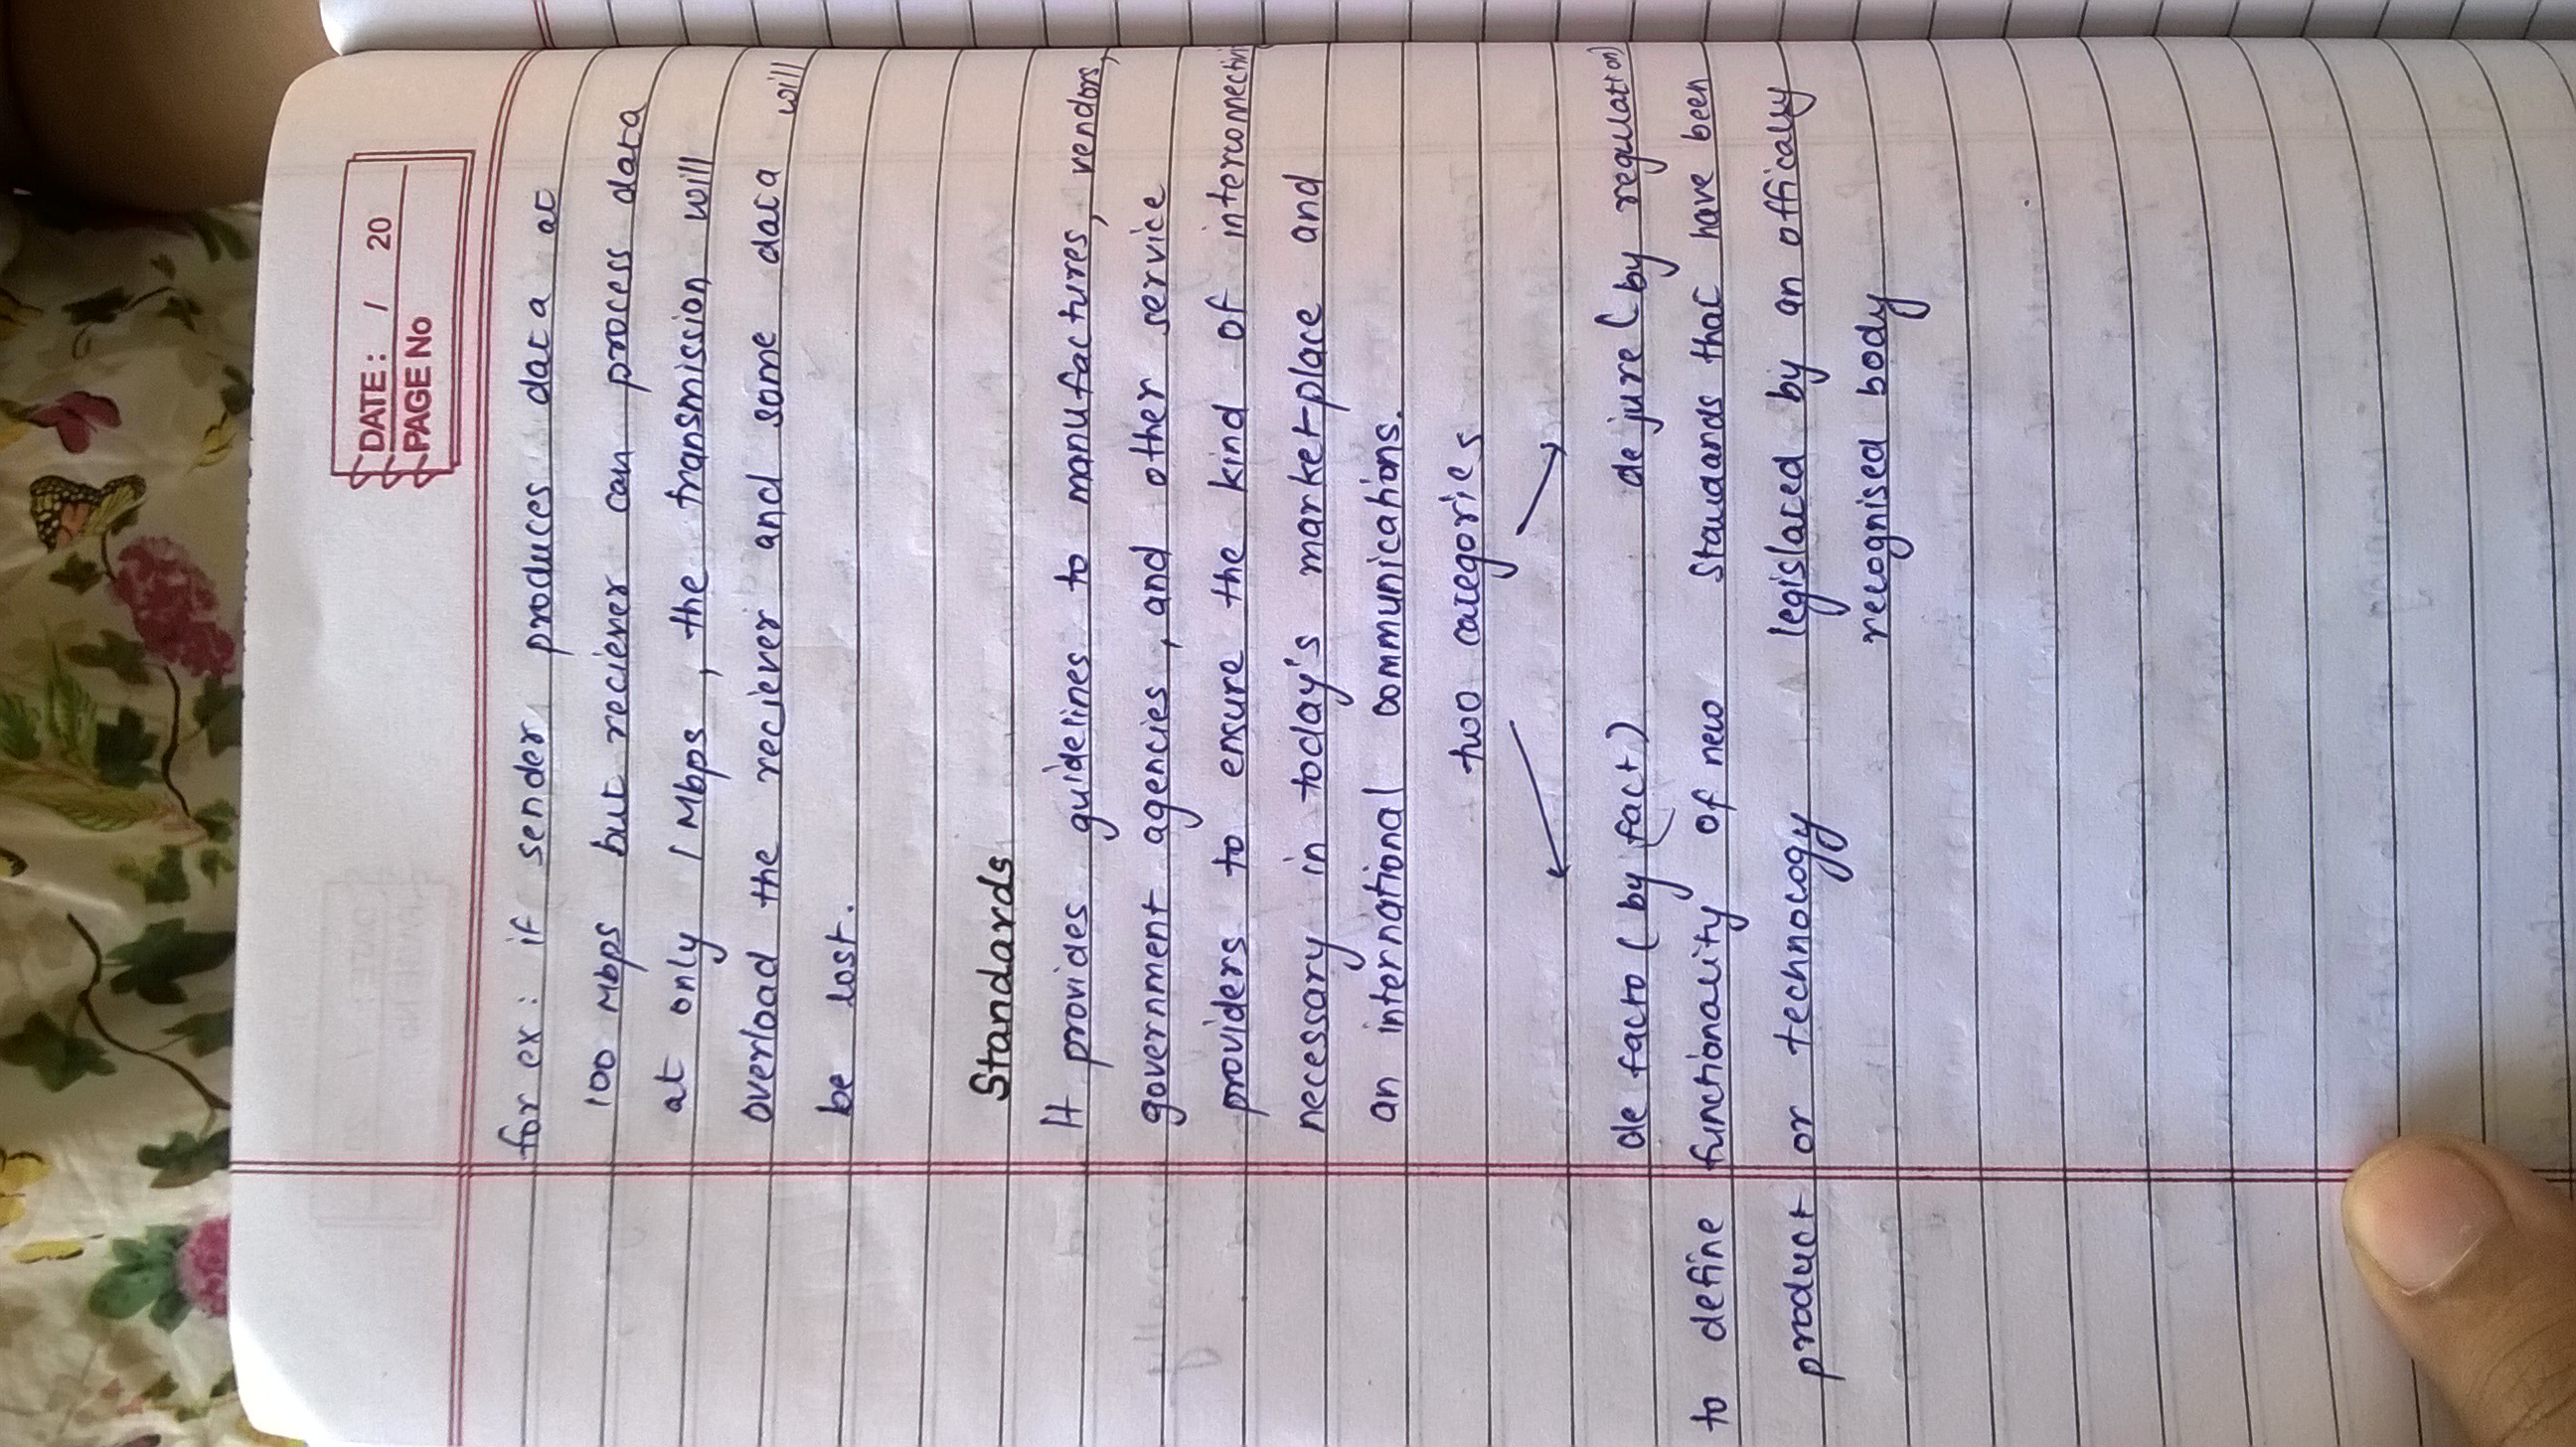 DATE: / 20
PAGE No
for ex: if sender produces data at
100 Mbps but reciever can process data
at only 1 Mbps, the transmission will
overload the reciever and some data will
be lost.
Standards
It provides guidelines to manufactures, vendors,
government agencies, and other service
providers to ensure the kind of interconnectivi
necessary in today's marketplace and
an international communications.
two categories
de facto (by fact) de jure (by regulation)
to define functionality of new Standards that have been
product or technology legislated by an offically
recognised body